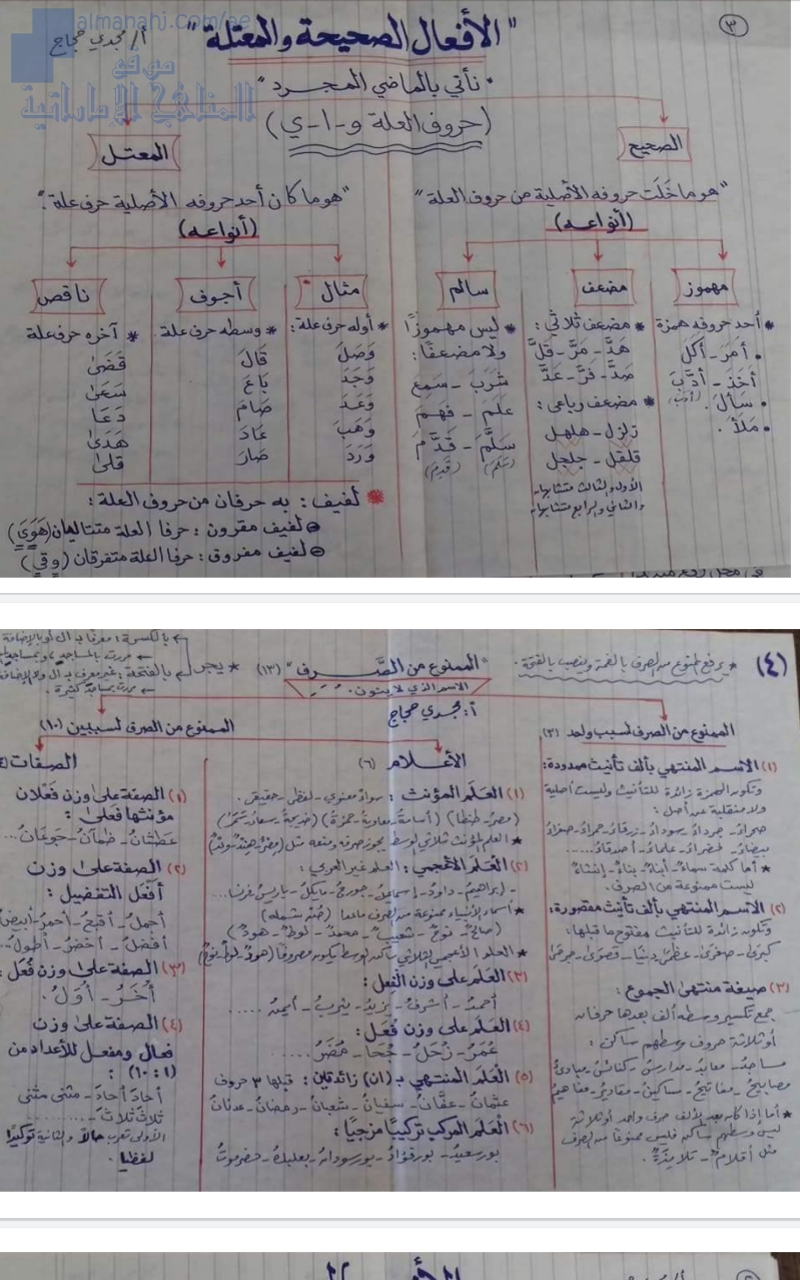 almanahj.com/ae
موقع
المناهج الإماراتية
(٣)
"الأفعال الصحيحة والمعتلة"
أ/ مجدي حجاج
• نأتي بالماضي المجرد "
(حروف العلة و-ا-ي)
الصحيح
المعتل
"هو ما خَلَت حروفه الأصلية من حروف العلة"
"هو ما كان أحد حروفه الأصلية حرف علة."
(أنواعه)
(أنواعه)
مهموز
* أحد حروفه همزة
• أمَرَ - أكَلَ
أخَذَ - أدَّبَ
• سَأَلَ. (أدب)
• مَلَأَ.
مضعف
* مضعف ثلاثي:
هَدَّ - مَرَّ - قَلَّ
صَدَّ - فَرَّ - عَدَّ
* مضعف رباعي:
زلزل - هلهل
قلقل - جلجل
الأول والثالث متشابهان
والثاني والرابع متشابهان
سالم
* ليس مهموزًا
ولا مضعفًا:
شَرِبَ - سَمِعَ
عَلِمَ - فَهِمَ
سَلَّمَ - قَدَّمَ
(سَلِمَ) (قَدِمَ)
مثال
* أوله حرف علة:
وَصَلَ
وَجَدَ
وَعَدَ
وَهَبَ
وَرَدَ
أجوف
* وسطه حرف علة
قَالَ
بَاعَ
صَامَ
عَادَ
صَارَ
ناقص
* آخره حرف علة
قَضَىٰ
سَعَىٰ
دَعَا
هَدَىٰ
قلىٰ
* لفيف: به حرفان من حروف العلة:
لفيف مقرون: حرفا العلة متتاليان (هَوَىَ)
لفيف مفروق: حرفا العلة متفرقان (وقي)
(٤)
* يرفع الممنوع من الصرف بالضمة وينصب بالفتحة.
"الممنوع من الصَّرف" (١٣)
الاسم الذي لا ينون.
* يجر
بالكسرة: معرفا بـ ال أو بالإضافة
مررت بالمساجدِ
بالفتحة: غير معرف بـ ال ولا الإضافة
مررت بمساجدَ كثيرة.
أ: مجدي حجاج
الممنوع من الصرف لسبب واحد (٣)
الممنوع من الصرف لسببين (١٠)
(١) الاسم المنتهي بألف تأنيث ممدودة:
وتكون الهمزة زائدة للتأنيث وليست أصلية
ولا منقلبة عن أصل:
صحراء - جرداء - سوداء - زرقاء - حمراء - صفراء
بيضاء - خضراء - علماء - أصدقاء.....
* أما كلمة سماء - أبناء - بناء - إنشاء
ليست ممنوعة من الصرف.
(٢) الاسم المنتهي بألف تأنيث مقصورة:
وتكون زائدة للتأنيث مفتوح ما قبلها:
كبرى - صغرى - عظمى - دنيا - قصوى - جرحى
(٣) صيغة منتهى الجموع:
جمع تكسير وسطه ألف بعدها حرفان
أو ثلاثة حروف وسطهم ساكن:
مساجد - معابد - مدارس - كنائس - مبادئ
مصابيح - مفاتيح - مساكين - مقادير - مفاهيم
* أما إذا كان بعد الألف حرف واحد أو ثلاثة
ليس وسطهم ساكن فليس ممنوعًا من الصرف
مثل أقلامٌ - تلاميذةٌ.
الأعلام (٦)
(١) العَلَم المؤنث: سواء معنوي - لفظي - حقيقي.
(مصر - طنطا) (أسامة - معاوية - حمزة) (خديجة - سعاد -
* العلم المؤنث ثلاثي الوسط يجوز صرفه ومنعه مثل (مصر - هند -
(٢) العَلَم الأعجمي: العلم غير العربي:
- إبراهيم - داود - إسماعيل - جورج - مايكل - باريس - فرنسا...
* أسماء الأنبياء ممنوعة من الصرف ماعدا (صُن شمله)
(صالح - نوح - شعيب - محمد - لوط - هود)
* العلم الأعجمي الثلاثي ساكن الوسط يكون مصروفًا (هود - لوط - نوح)
(٣) العَلَم على وزن الفِعل:
أحمد - أشرف - يزيد - يثرب - أيمن .....
(٤) العَلَم على وزن فُعَل:
عُمَر - زُحَل - جُحا - مُضَر.....
(٥) العَلَم المنتهي بـ (ان) زائدتين: قبلها ٣ حروف
عثمان - عفَّان - سفيان - شعبان - رمضان - عدنان
(٦) العَلَم المركب تركيبًا مزجيًا:
بورسعيد - بورفؤاد - بورسودان - بعلبك - حضرموت
الصفات
(١) الصفة على وزن فَعْلان
مؤنثها فَعْلى:
عَطْشَان - ظمآن - جَوْعَان...
(٢) الصفة على وزن
أفعَل التفضيل:
أجمل - أقبح - أحمر - أبيض
أفضل - أخضر - أطول..
(٣) الصفة على وزن فُعَل:
أُخَر - أُوَل.
(٤) الصفة على وزن
فعال ومفعل للأعداد من
(١:١٠):
أحادَ أحادَ - مثنى مثنى
ثلاثَ ثلاثَ.........
الأولى تعرب حالًا والثانية توكيدًا
لفظيا.